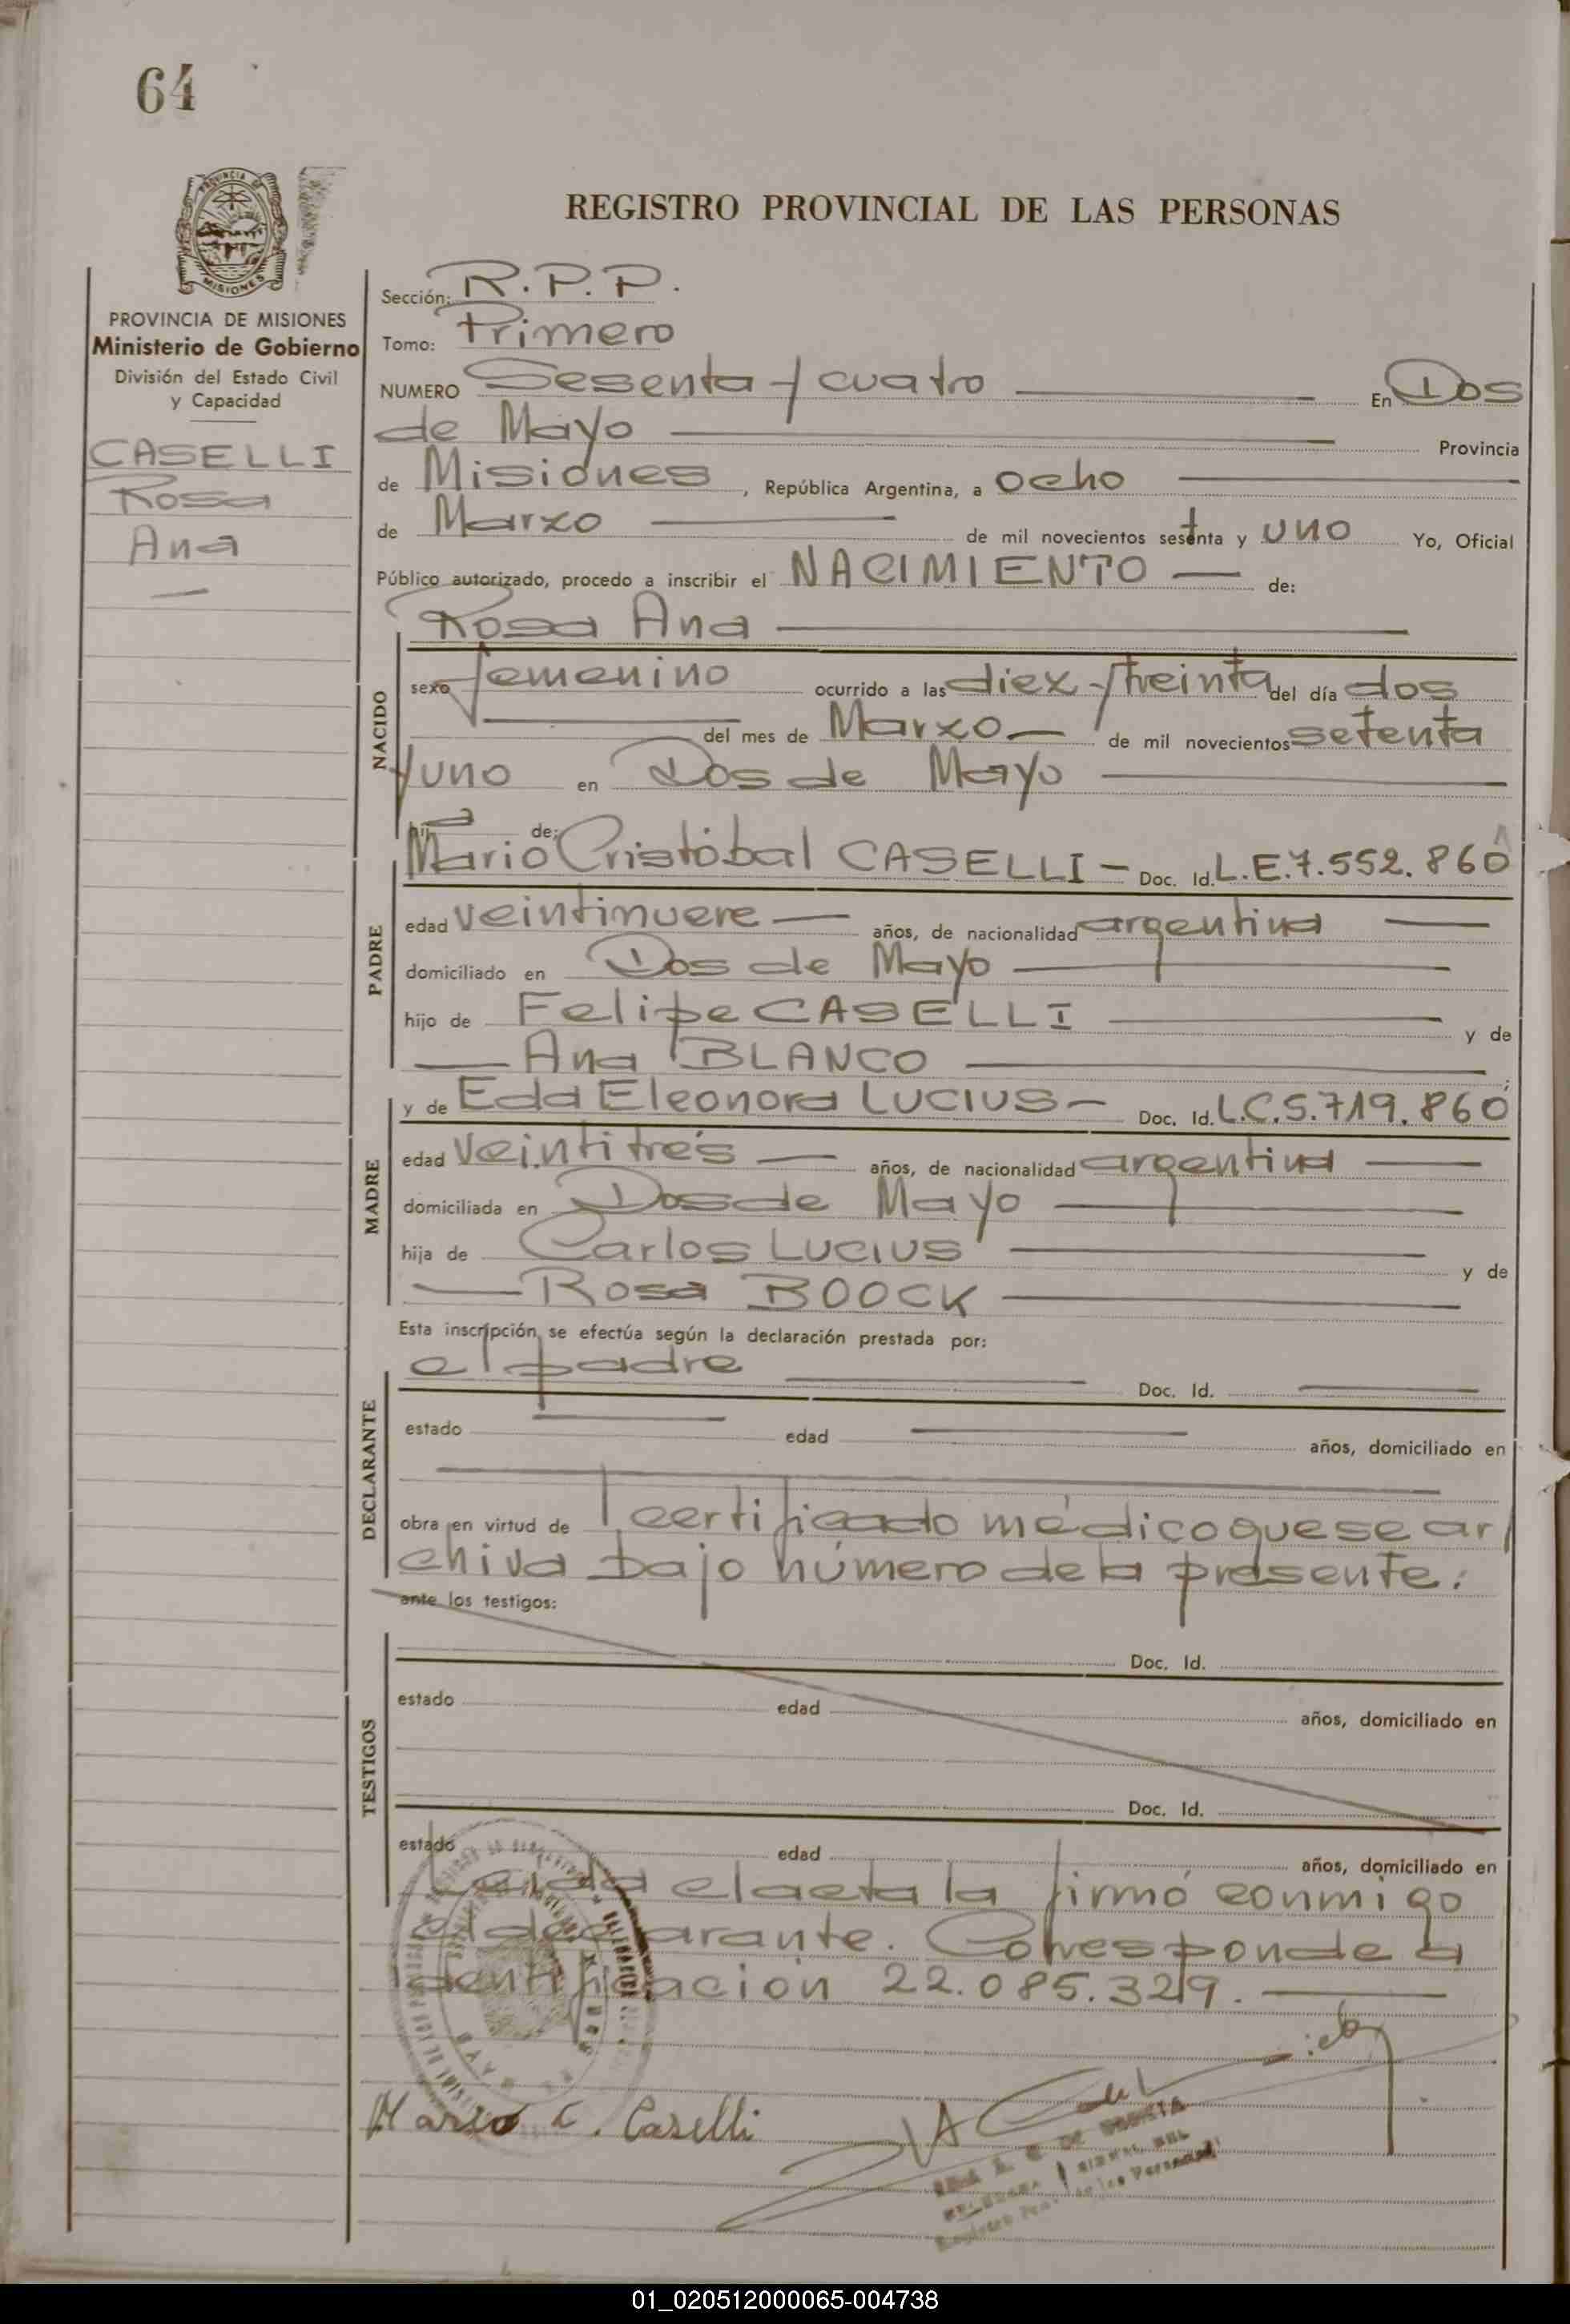 64
REGISTRO PROVINCIAL DE LAS PERSONAS
PROVINCIA DE MISIONES
Ministerio de Gobierno
División del Estado Civil
y Capacidad
CASELLI
Rosa
Ana
Sección: R.P.P.
Tomo: Primero
NUMERO Sesenta y cuatro En Dos
de Mayo Provincia
de Misiones, República Argentina, a ocho
de Marzo de mil novecientos setenta y uno Yo, Oficial
Público autorizado, procedo a inscribir el NACIMIENTO de:
Rosa Ana
NACIDO
sexo femenino ocurrido a las diez y treinta del día dos
del mes de Marzo de mil novecientos setenta
y uno en Dos de Mayo
hija de:
Mario Cristóbal CASELLI - Doc. Id. L.E.7.552.860
PADRE
edad veintinueve años, de nacionalidad argentina
domiciliado en Dos de Mayo
hijo de Felipe CASELLI y de
Ana BLANCO
y de Eda Eleonora LUCIUS - Doc. Id. L.C.5.719.860
MADRE
edad veintitrés años, de nacionalidad argentina
domiciliada en Dos de Mayo
hija de Carlos LUCIUS y de
Rosa BOOCK
Esta inscripción se efectúa según la declaración prestada por:
el padre Doc. Id.
DECLARANTE
estado edad años, domiciliado en
obra en virtud de certificado médico que se ar
chiva bajo número de la presente.
ante los testigos:
TESTIGOS
Doc. Id.
estado edad años, domiciliado en
Doc. Id.
estado edad años, domiciliado en
Leída el acta la firmó conmigo
el declarante. Corresponde a
identificación 22.085.329.
Mario C. Caselli
01_020512000065-004738